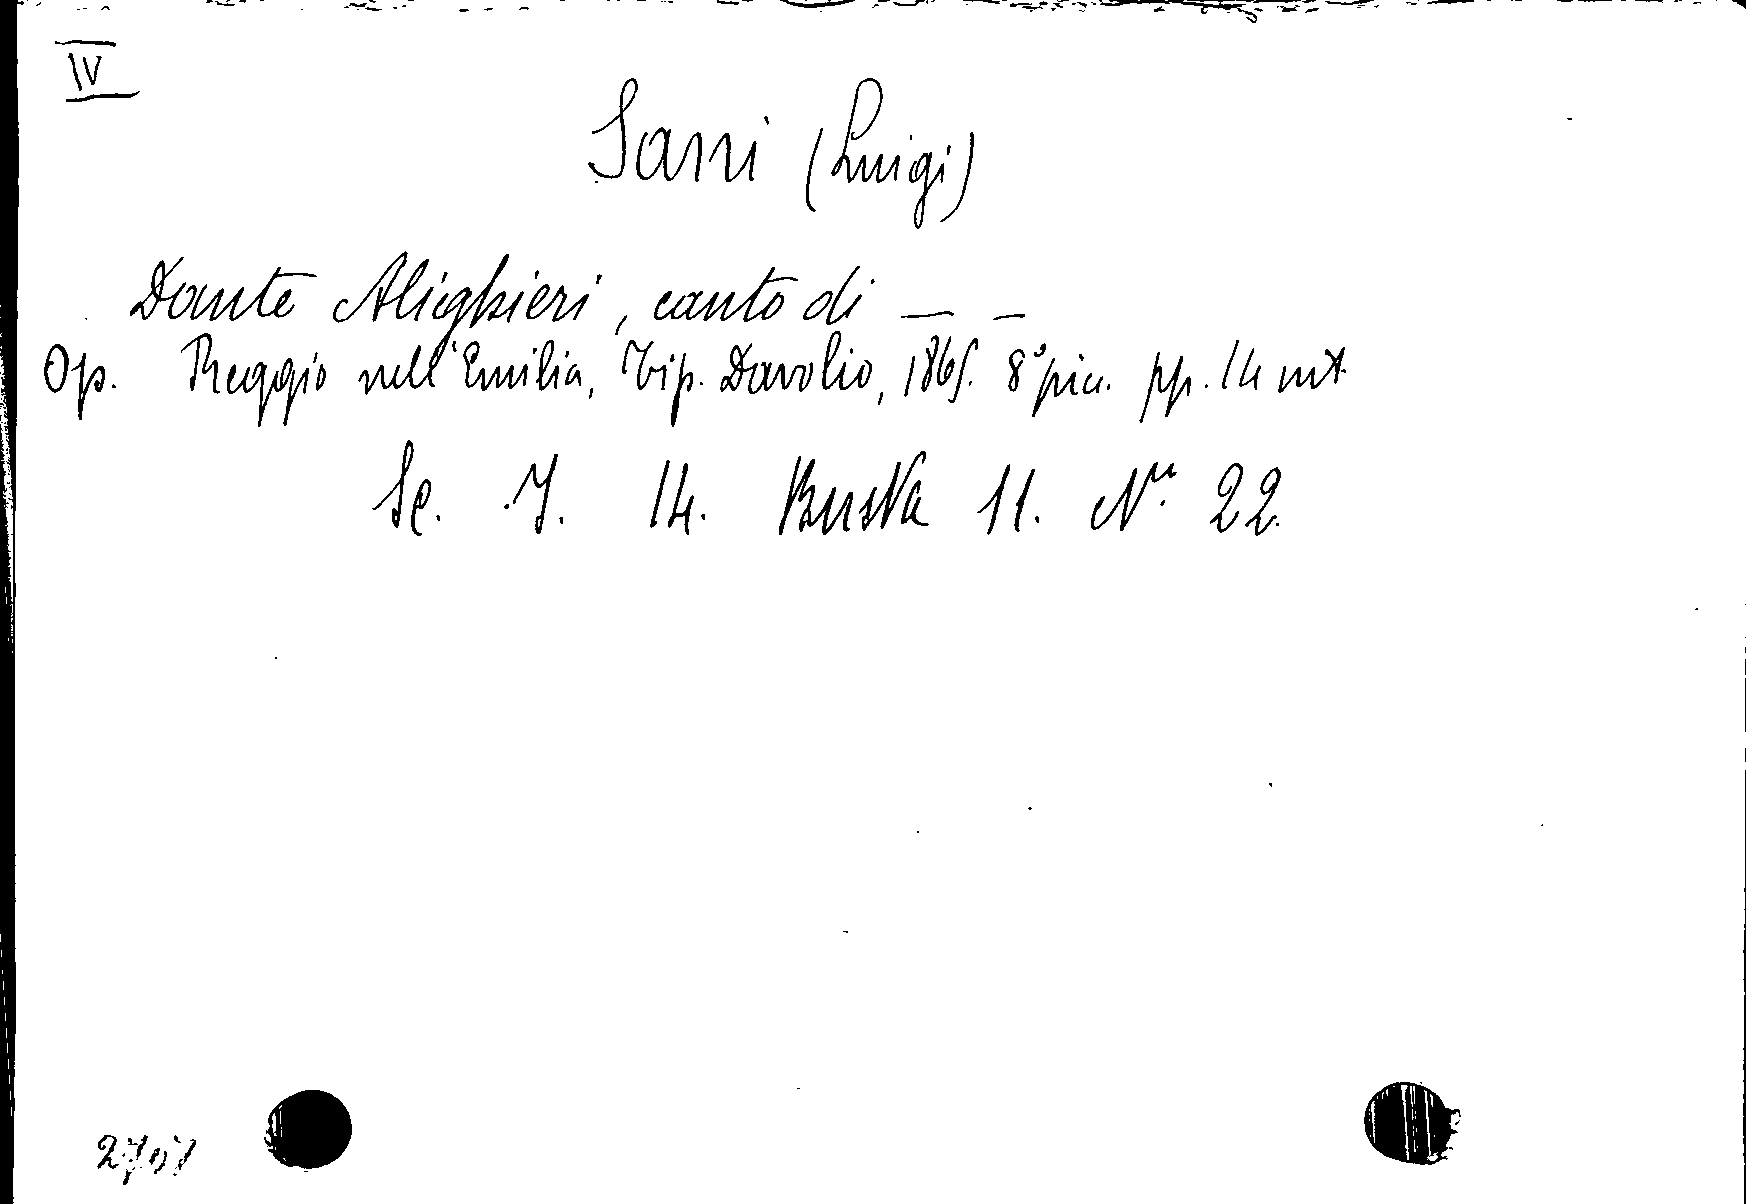 IV
Sani (Luigi)
Dante Alighieri, canto di — —
Op. Reggio nell'Emilia, Tip. Davolio, 1865. 8° picc. pp. 14 nnt.
Sc. I. 14. Busta 11. Nº. 22.
2707